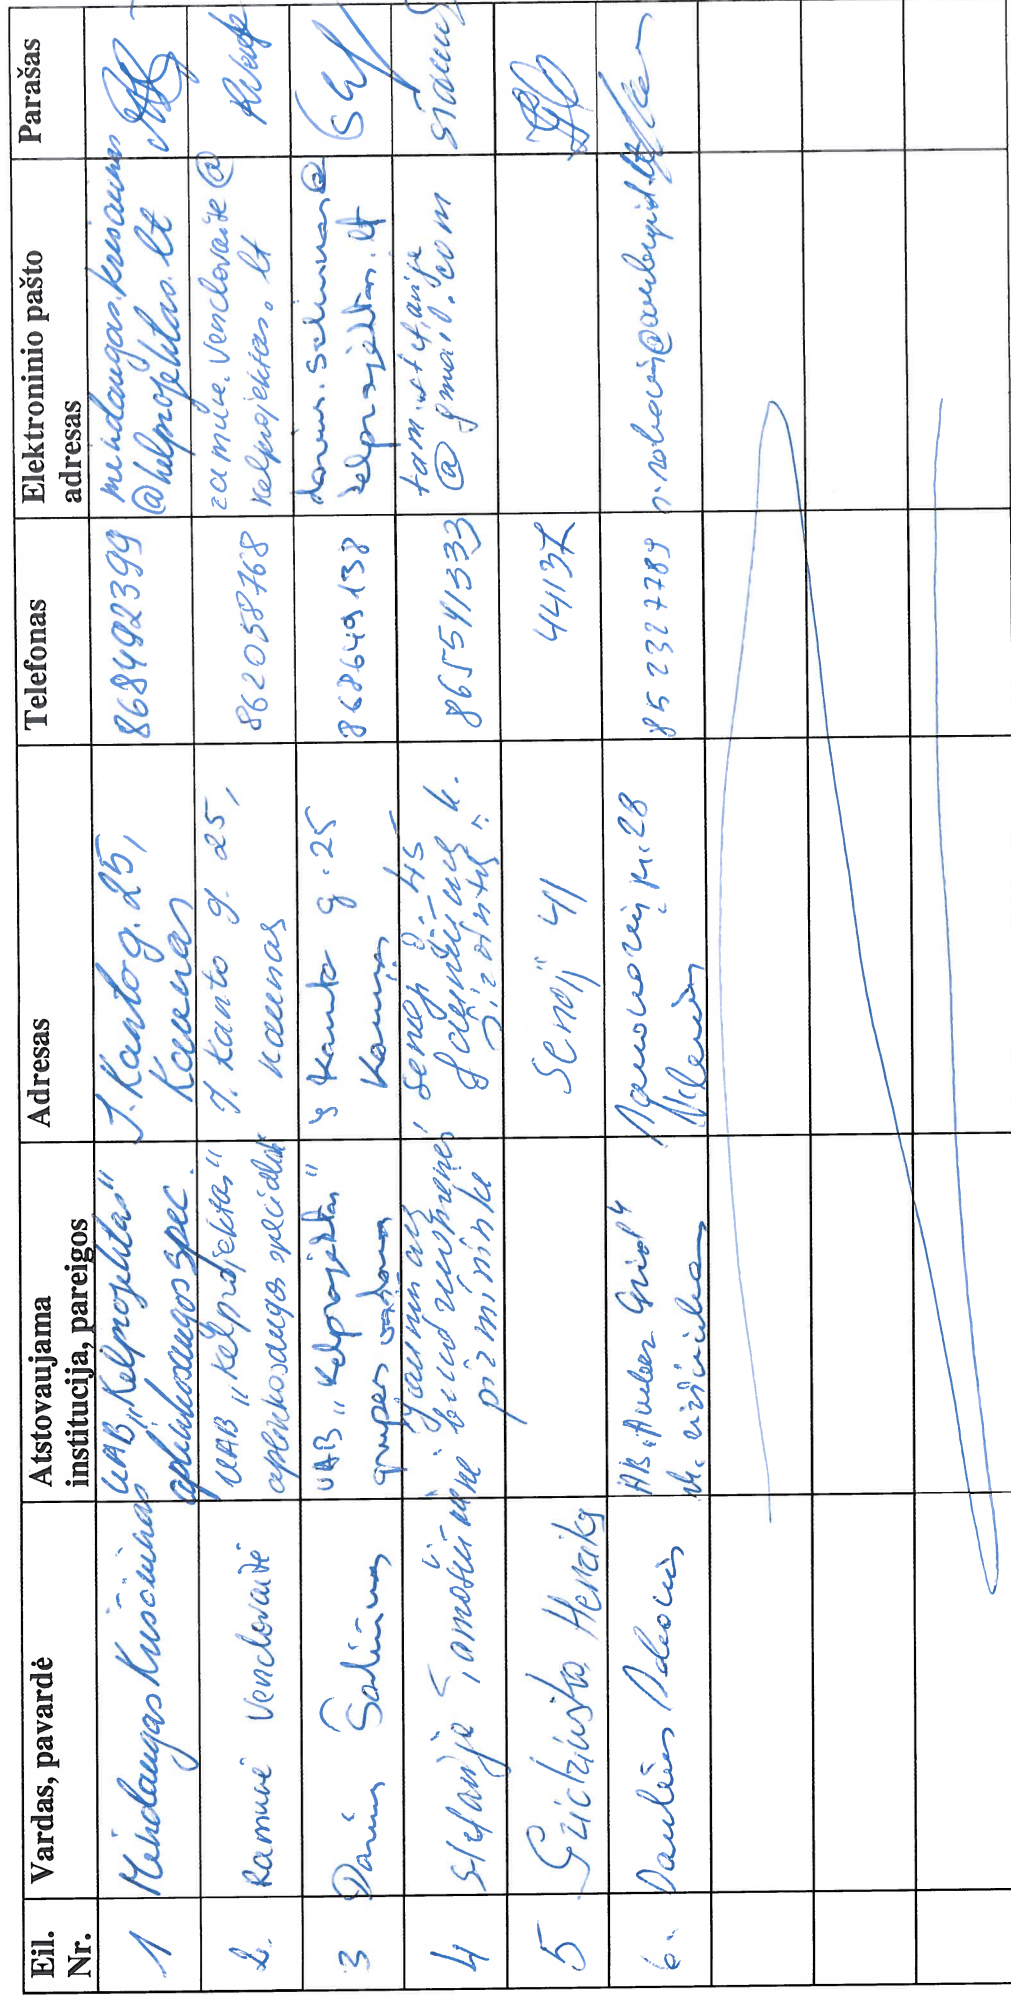 Eil. Nr.
Vardas, pavardė
Atstovaujama institucija, pareigos
Adresas
Telefonas
Elektroninio pašto adresas
Parašas
1
Mindaugas Krisčiūnas
UAB „Kelprojektas"
aplinkosaugos spec.
J. Kanto g. 25,
Kaunas
868492399
mindaugas.krisciunas
@kelprojektas.lt
2.
Ramunė Venclovaitė
UAB „Kelprojektas"
aplinkosaugos specialistė
I. Kanto g. 25,
Kaunas
862058768
ramune.venclovaite@
kelprojektas.lt
3
Darius Šaliūnas
UAB „Kelprojektas"
grupės vadovas
Kanto g. 25
Kaunas
868649138
darius.saliunas@
kelprojektas.lt
4
Stefanija Tamošiūnienė
bendruomenės
pirmininkė
Senoji g. 45
k.
865541333
tam.stefanija
@gmail.com
5
Henrik
Senoji 41
44137
6.
AB „Amber Grid"
vyr. inžinierius
pr. 28
Vilnius
852327789